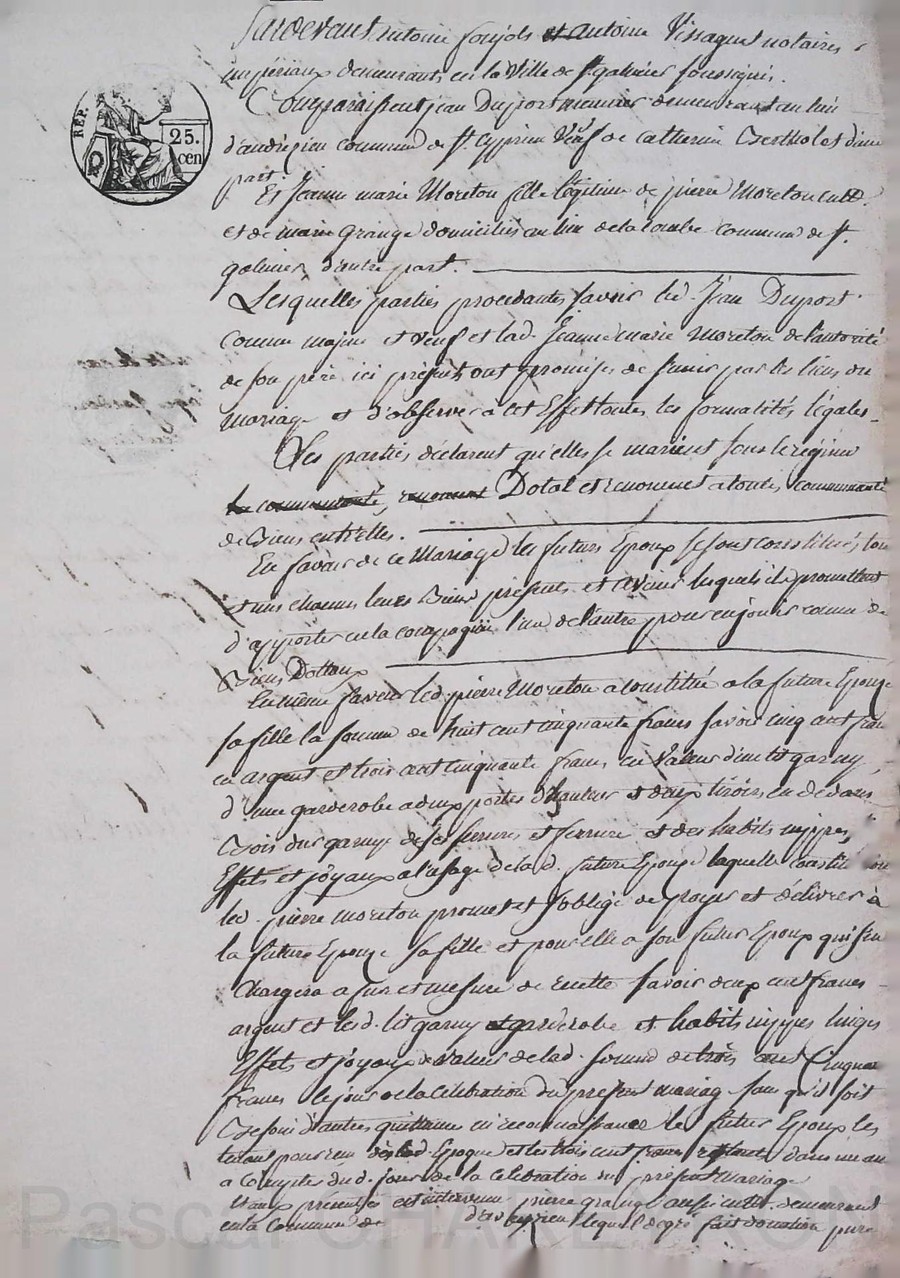 Pardevant antoine foujols et antoine Vissaguet notaires
impériaux demeurants en la Ville de St galmier soussignés.
REP.
25.
cen
Comparaissent jean Duport meunier demeurant au lieu
d'andrézieu commune de St. Cyprien Veuf de Catherine Bertholet d'une
part.
Et Jeanne marie Moreton fille légitime de pierre Moreton cultr.
et de marie grange domiciliés au lieu de la Combe commune de St.
galmier d'autre part.
Lesquelles parties procédantes, savoir led. Jean Duport
comme majeur et Veuf et lad. Jeanne marie Moreton de l'autorité
de son père ici présent, ont promises de s'unir par les liens du
mariage et d'observer à cet Effet toutes les formalités légales.
Les parties déclarent qu'elles se marient sous le régime
la communauté, renoncent Dotal et renoncent a toutes communauté
de Biens entr'elles.
En faveur de ce Mariage les futurs Epoux se sont constitués tous
et uns chacuns leurs Biens présents et avenir lesquels ils promettent
d'apporter en la compagnie l'un de l'autre pour en jouir comme de
Biens Dottaux
En même faveur led. pierre Moreton a constitué a la future Epouze
sa fille la somme de huit cent cinquante francs savoir cinq cent francs
en argent et trois cent cinquante francs en Valeur d'un lit garny,
d'une garderobe a deux portes d'hauteur et deux tiroirs en dedans
Bois dur garnye de ses serrures et ferrure et des habits nippes,
Effets et joyaux a l'usage de lad. future Epouze laquelle constitution
led. pierre moreton promet et s'oblige de payer et délivrer à
la future Epouze sa fille et pour elle a son futur Epoux qui s'en
Chargera a fur et mesure de recette savoir deux cent francs
argent et led. lit garny et garderobe et habits nippes linges
Effets et joyaux de valeur de lad. somme de trois cent Cinquante
francs le jour de la célébration du présent mariage sans qu'il soit
Besoin d'autres quittance ni reconnaissance le futur Epoux les
tenant pour reçu dès led. Epoque et les trois cent francs restants dans un an
a Compter dud. jour de la Celebration du présent Mariage
Et aux présentes est intervenu pierre grange aussi cultr. demeurant
en la Commune de d'andrezieu lequel de gré fait donation pure
Pascal